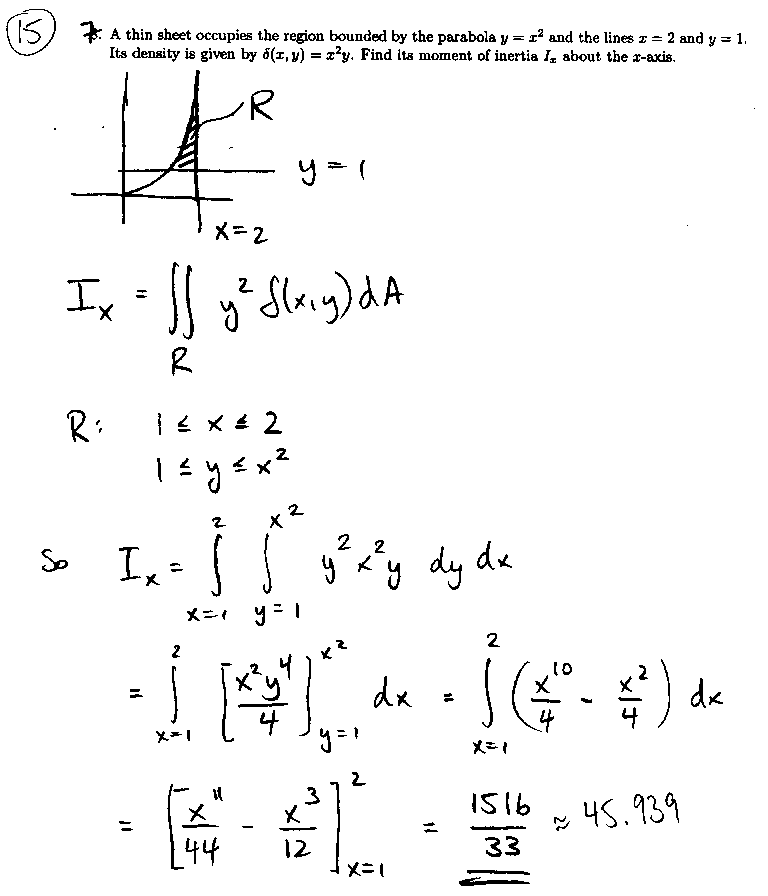 15 7. A thin sheet occupies the region bounded by the parabola y = x² and the lines x = 2 and y = 1.
Its density is given by δ(x, y) = x²y. Find its moment of inertia Iₓ about the x-axis.
R
y = 1
x = 2
Iₓ = ∬ y² δ(x,y) dA
R
R: 1 ≤ x ≤ 2
1 ≤ y ≤ x²
So Iₓ = ∫_{x=1}^{2} ∫_{y=1}^{x²} y² x² y dy dx
= ∫_{x=1}^{2} [x²y⁴/4]_{y=1}^{x²} dx = ∫_{x=1}^{2} (x¹⁰/4 - x²/4) dx
= [x¹¹/44 - x³/12]_{x=1}^{2} = 1516/33 ≈ 45.939